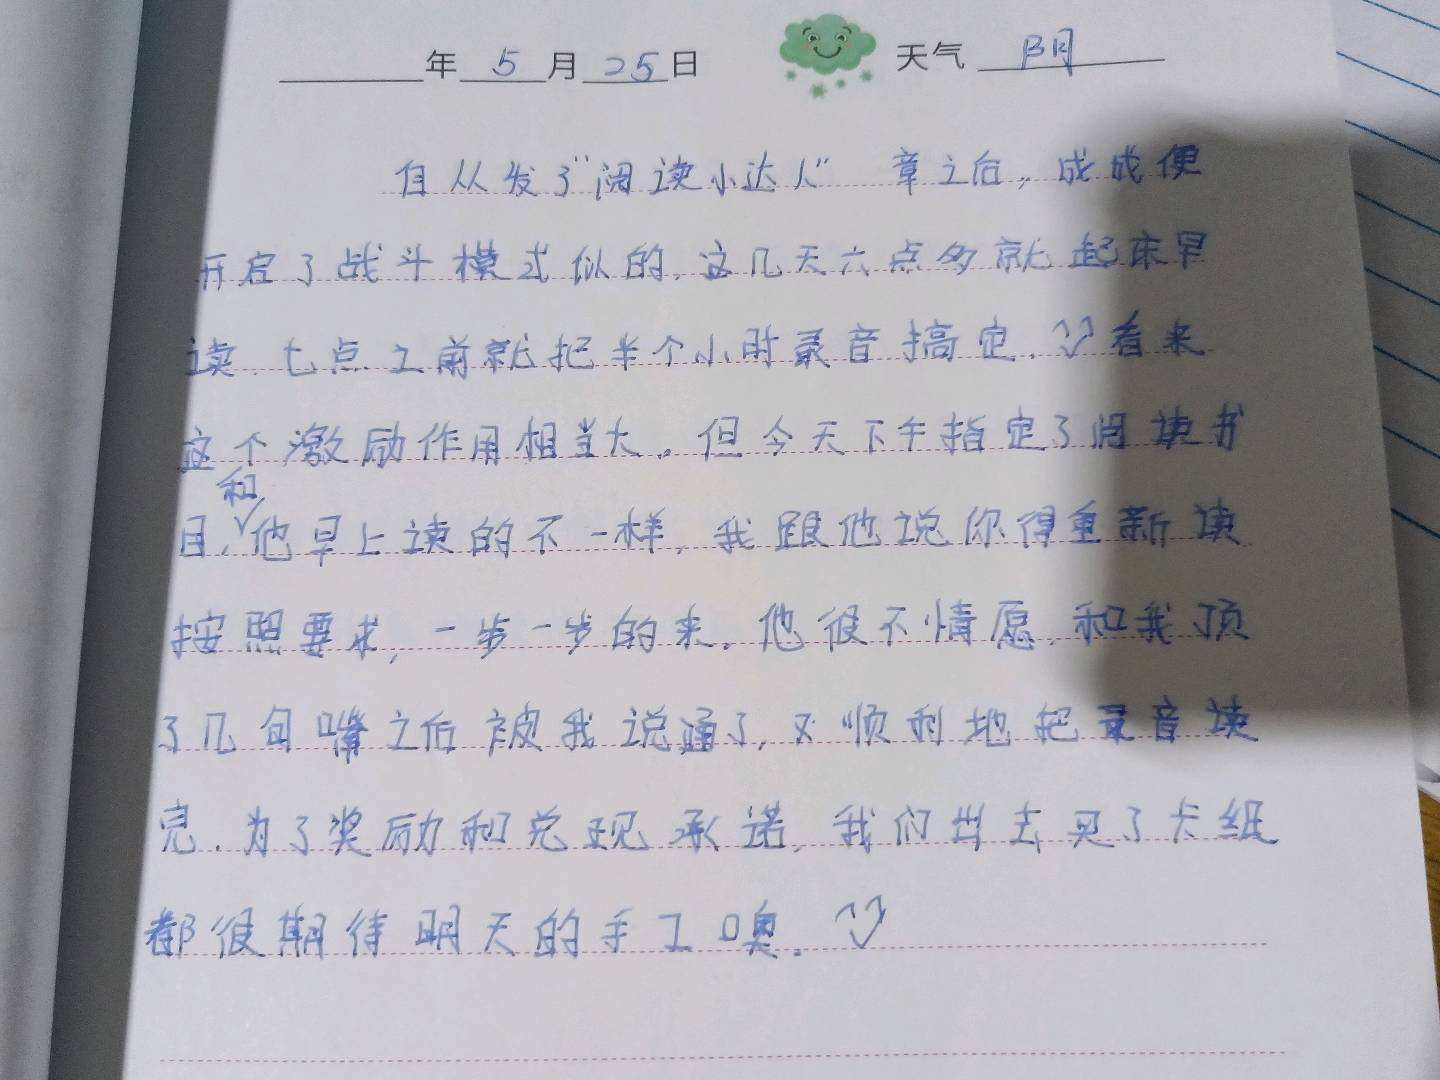 年 5 月 25 日 天气 阴
自从发了“阅读小达人” 章之后，成成便
开启了战斗模式似的，这几天六点多就起床早
读，七点之前就把半个小时录音搞定，看来
这个激励作用相当大。但今天下午指定了阅读书
目，和他早上读的不一样，我跟他说你得重新读
按照要求，一步一步的来。他很不情愿，和我顶
了几句嘴之后被我说通了，又顺利地把录音读
完，为了奖励和兑现承诺，我们出去买了卡纸
都很期待明天的手工噢。